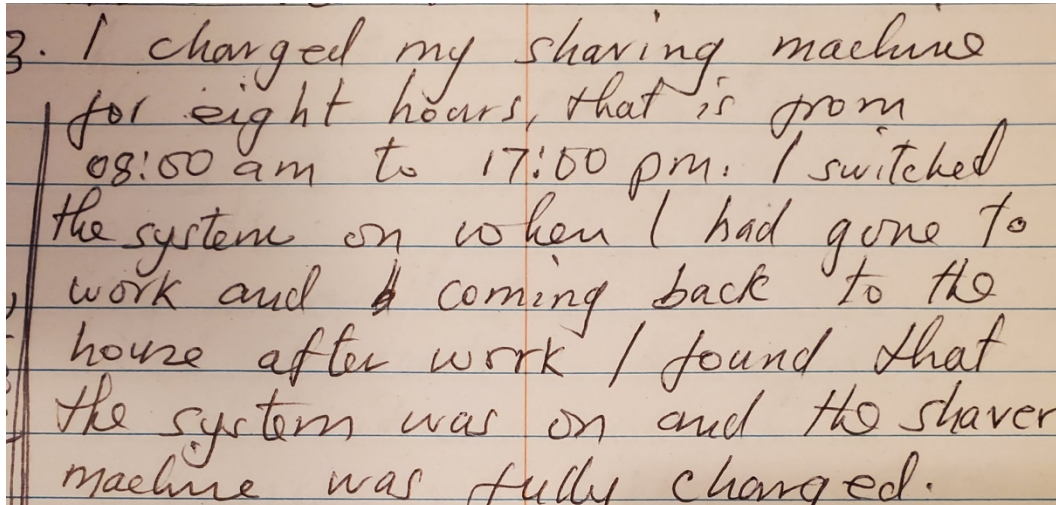 3. I charged my shaving machine
for eight hours, that is from
08:00 am to 17:00 pm. I switched
the system on when I had gone to
work and coming back to the
house after work I found that
the system was on and the shaver
machine was fully charged.